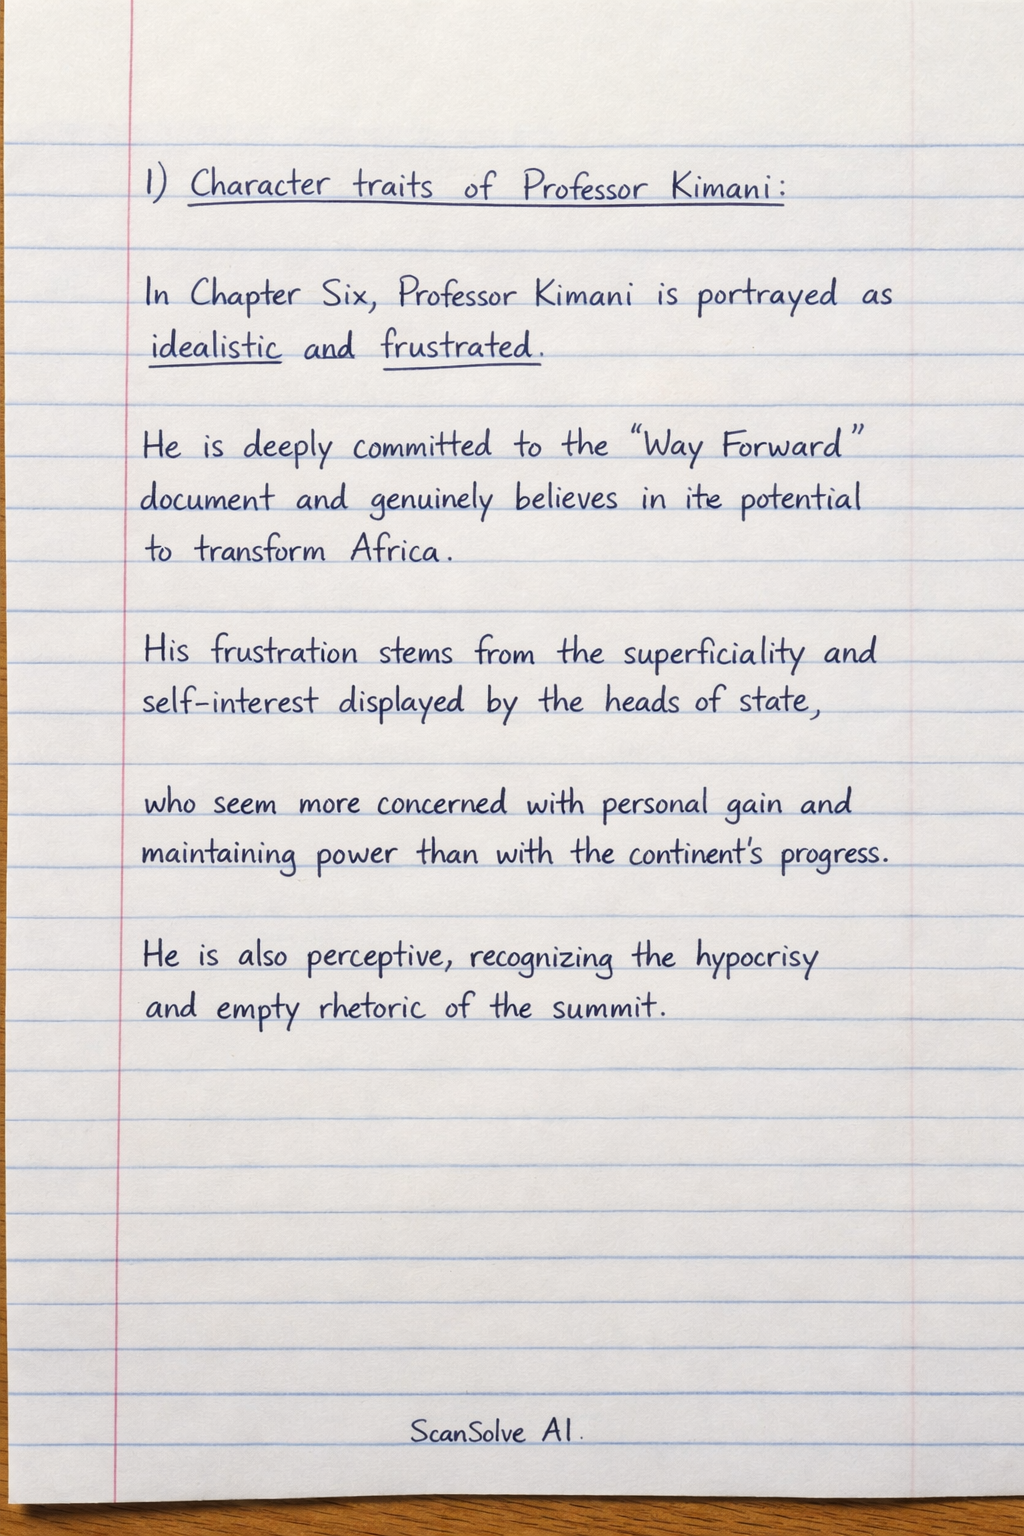 1) Character traits of Professor Kimani:
In Chapter Six, Professor Kimani is portrayed as
idealistic and frustrated.
He is deeply committed to the “Way Forward”
document and genuinely believes in ite potential
to transform Africa.
His frustration stems from the superficiality and
self-interest displayed by the heads of state,
who seem more concerned with personal gain and
maintaining power than with the continent's progress.
He is also perceptive, recognizing the hypocrisy
and empty rhetoric of the summit.
ScanSolve AI.